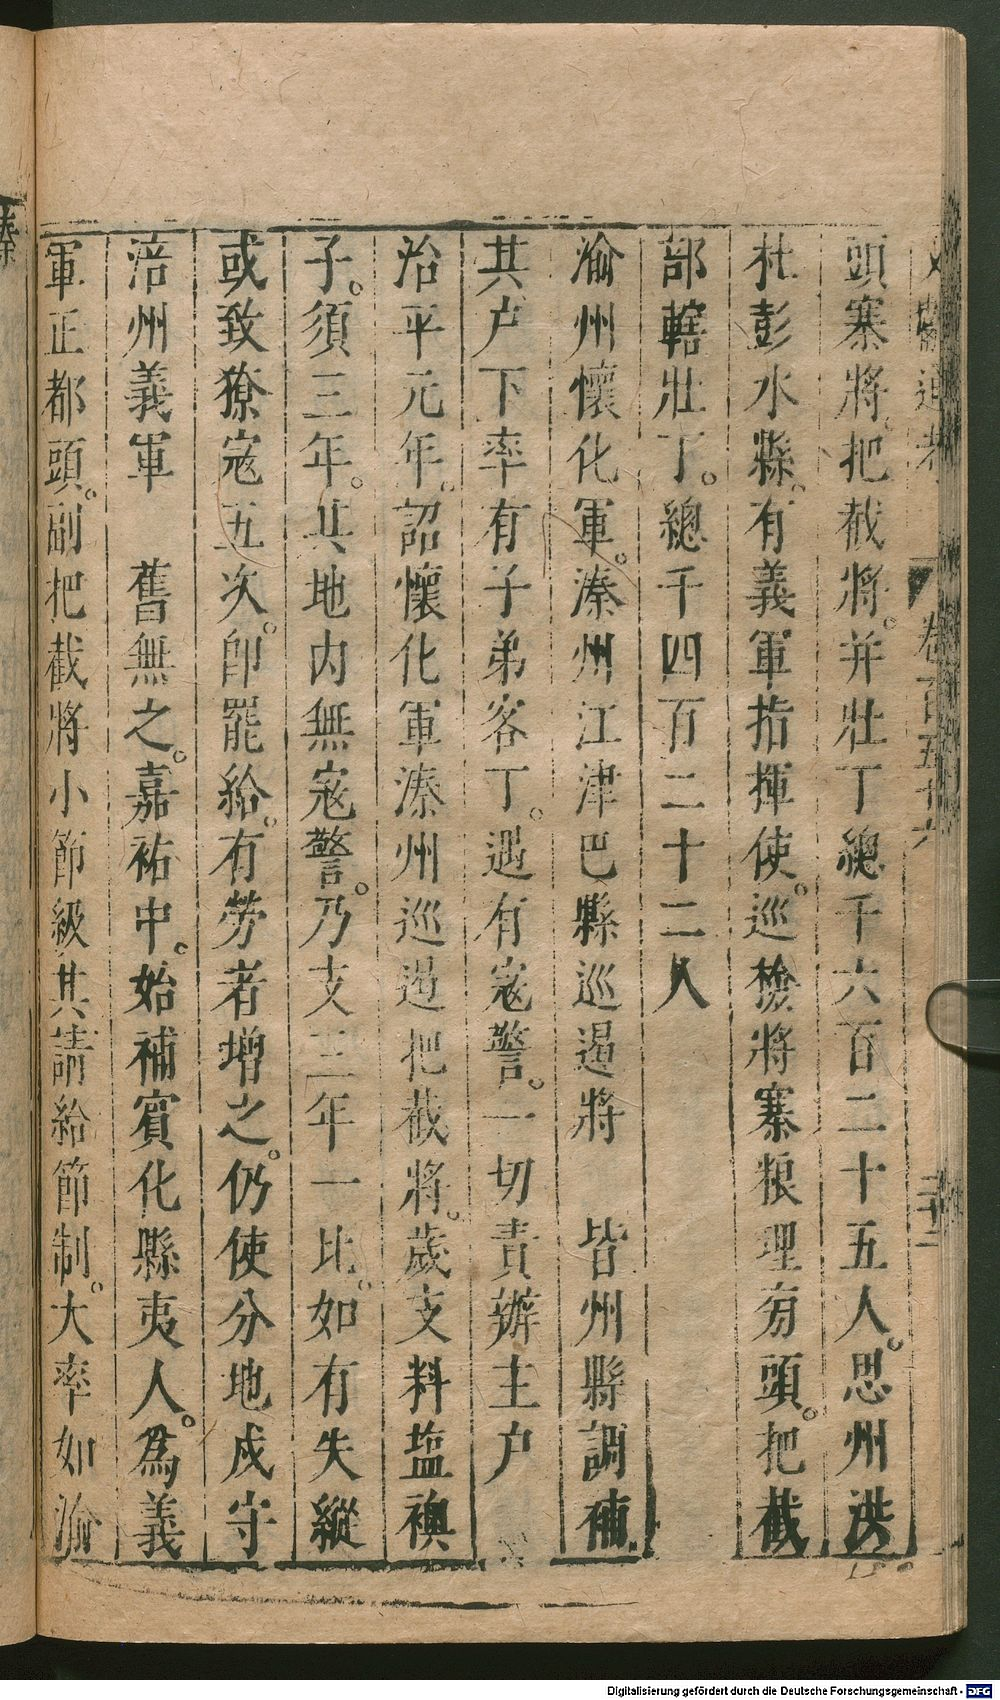 文獻通考 卷百五十六 二十二
頭寨將。把截將。并壯丁總千六百二十五人。思州洪
杜彭水縣。有義軍指揮使。巡檢將寨粮理旁頭。把截
部轄壯丁。總千四百二十二人
渝州懷化軍。溱州江津巴縣巡遏將 皆州縣調補
其户下率有子弟客丁。遇有寇警。一切責辦主户
治平元年。詔懷化軍溱州巡遏把截將。歲支料塩襖
子。須三年。其地内無寇警。乃支三年一比。如有失縱
或致獠寇五次。即罷給。有勞者增之。仍使分地戍守
涪州義軍 舊無之。嘉祐中。始補賓化縣夷人。為義
軍正都頭。副把截將小節級其請給節制。大率如渝
Digitalisierung gefördert durch die Deutsche Forschungsgemeinschaft - DFG